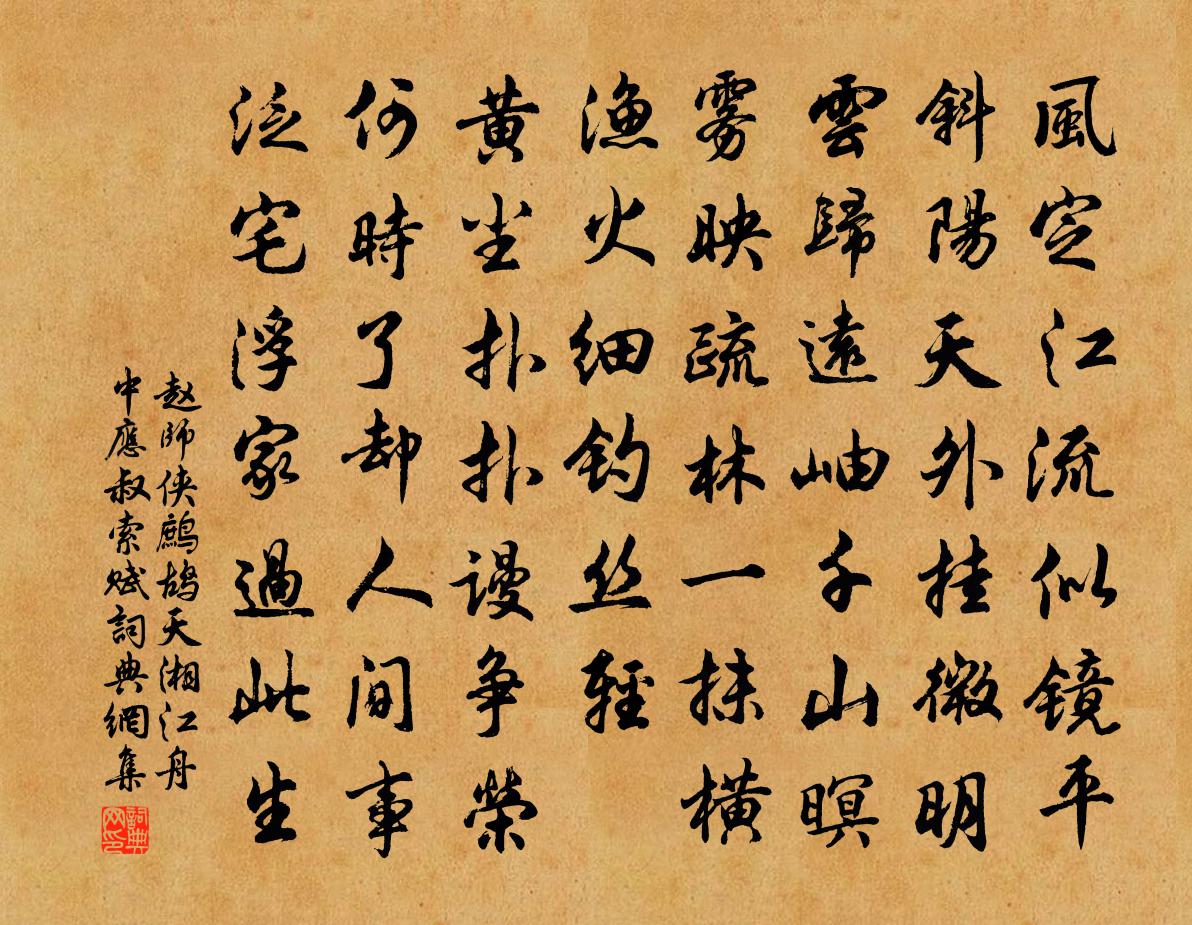 風定江流似镜平
斜陽天外挂微明
雲歸遠岫千山暝
雾映疏林一抹横
渔火细钓丝轻
黄尘扑扑谩争榮
何時了却人间事
泛宅浮家過此生
赵師侠鹧鸪天湘江舟
中應叔索赋詞典網集
詞典网印